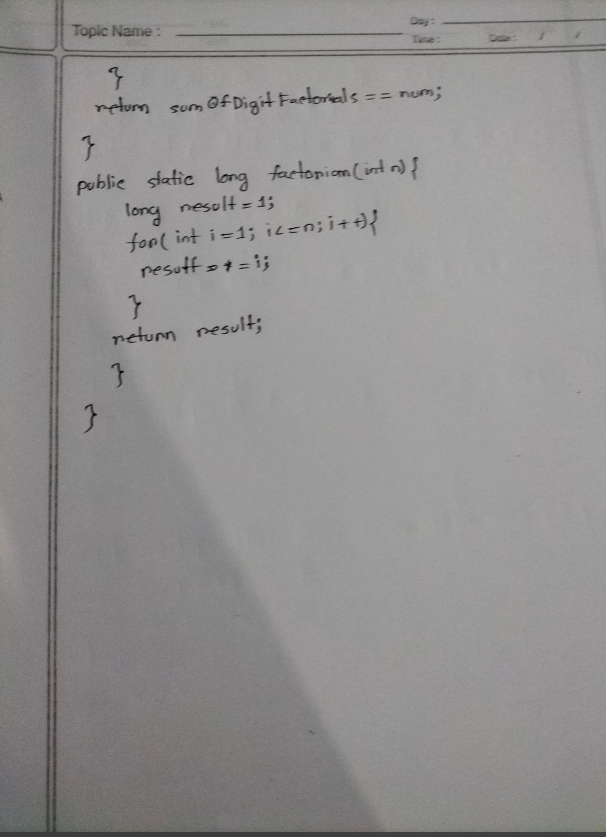 Topic Name :
Day :
Time :
Date : / /
}
return sumOfDigitFactorials == num;
}
public static long factorian(int n){
long result = 1;
for( int i = 1; i <= n; i++){
result * = i;
}
return result;
}
}